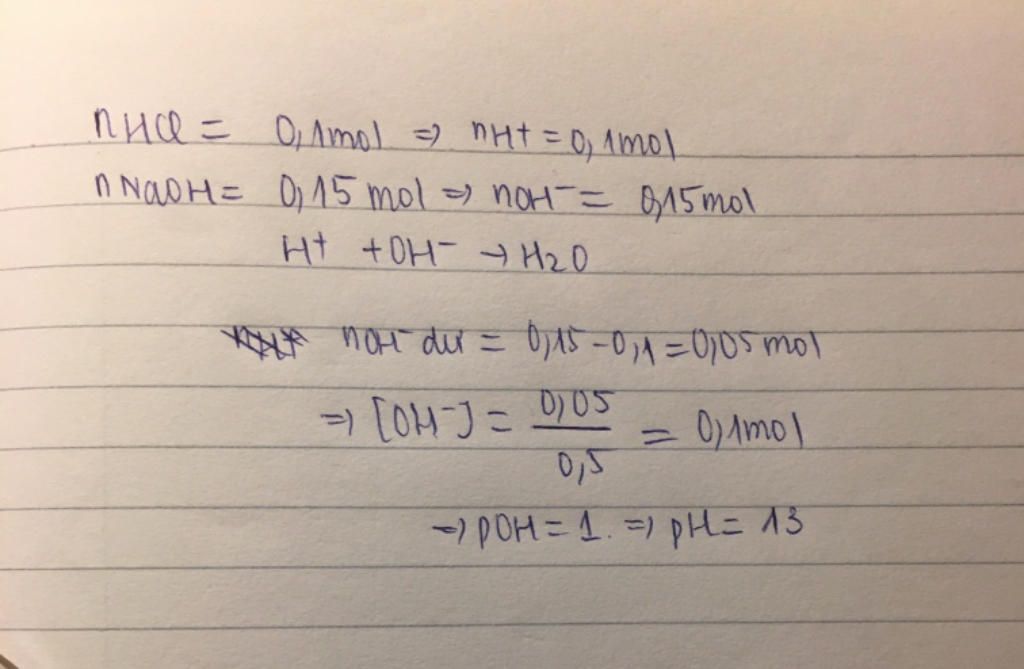 nHCl = 0,1mol => nH+ = 0,1mol
nNaOH = 0,15 mol => nOH- = 0,15mol
H+ + OH- → H2O
nOH- dư = 0,15 - 0,1 = 0,05 mol
=> [OH-] = 0,05 / 0,5 = 0,1mol
=> pOH = 1. => pH = 13